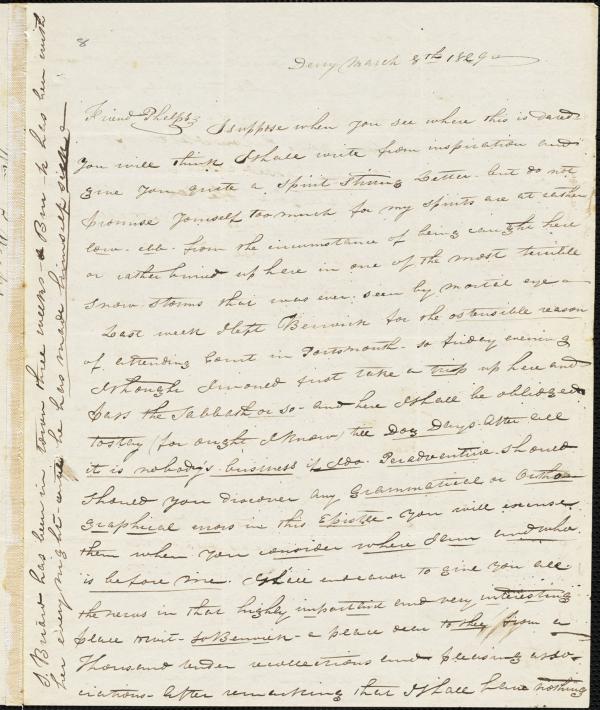 8
Derry March 8th 1829
Friend Phelps, I suppose when you see where this is dated
you will think I shall write from inspiration and
give you quite a spirit stirring Letter. but do not
promise yourself too much for my spirits are at rather
low-ebb- from the circumstance of being caught here
or rather buried up here in one of the most terrible
snow storms that was ever seen by mortal eye
Last week I left Berwick for the ostensible reason
of attending Court in Portsmouth- so friday evening
I thought I would just take a trip up here and
pass the Sabbath or so- and here I shall be obliged
to stay (for ought I know) till Dog Days. After all
it is nobody's business if I do. Peradventure should
should you discover any Grammatical or Ortho-
graphical errors in this Epistle- you will excuse
them when you consider where I am and who
is before me. I shall endeavor to give you all
the news in that highly important and very interesting
place to wit- So Berwick- a place dear to thee from a
thousand tender recollections and pleasing asso-
ciations- After remarking that I shall have nothing
has been in town three weeks- he has her with
her every night- he has made himself